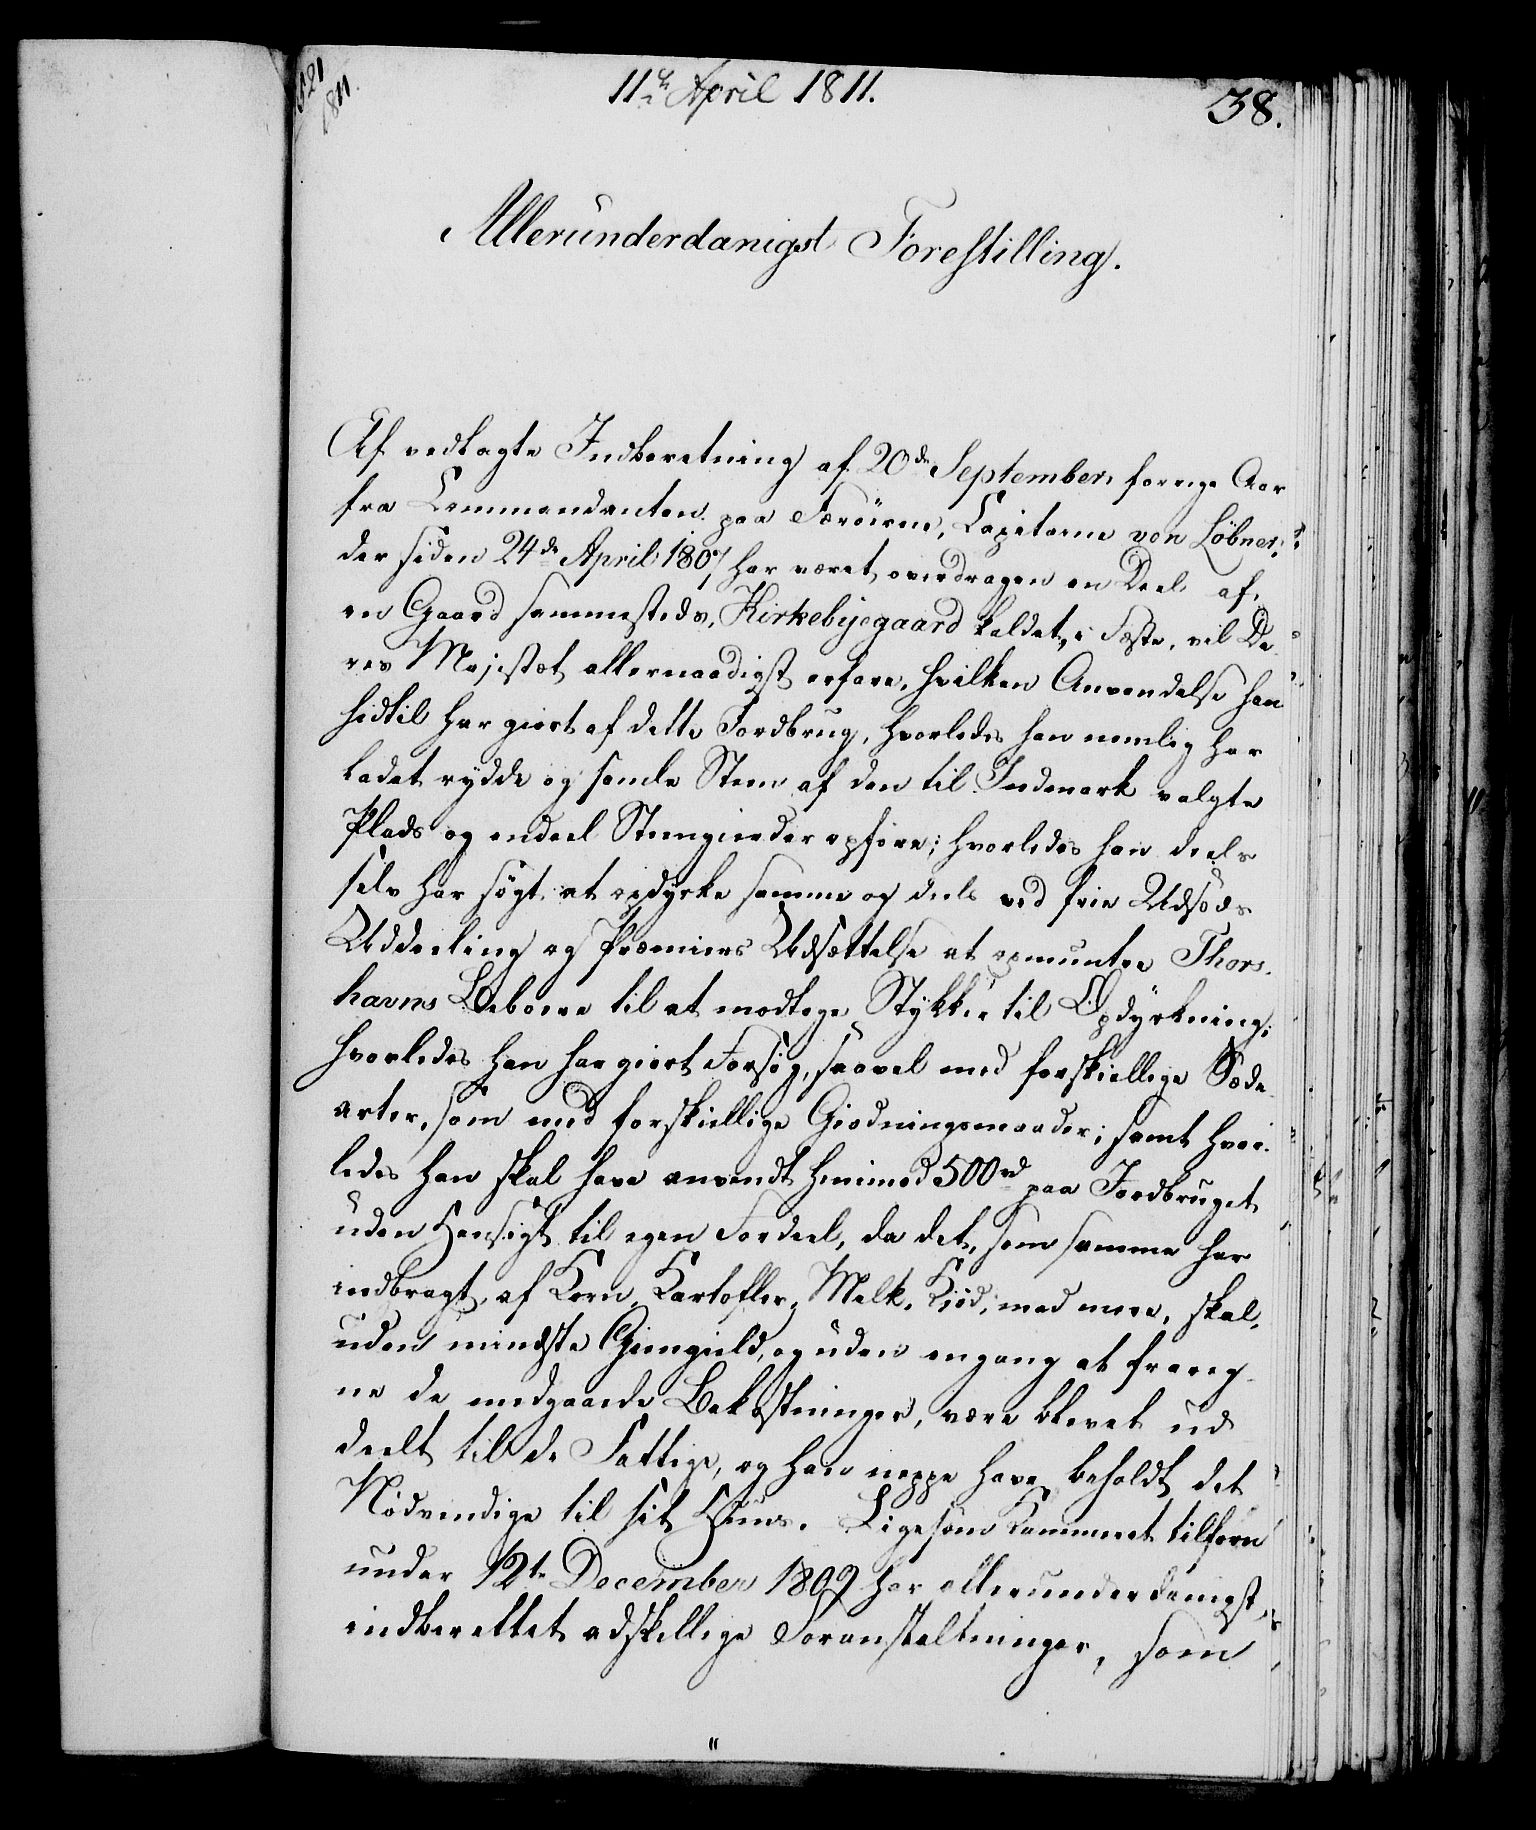 11te April 1811.
38.
1811.
Allerunderdanigst Forestilling.
Af vedlagte Indberetning af 20de September forrige Aar
fra Commandanten paa Færöerne, Capitaine von Löbner,
der siden 24de April 1807 har været overdragen en Deel af
en Gaard sammesteds, Kirkebÿegaard kaldet, i Fæste, vil De-
res Majestæt allernaadigst erfare, hvilken Anvendelse han
hidtil har giort af dette Jordbrug, hvorledes han nemlig har
ladet rydde og samle Steen af den til Indmark valgte
Plads og endeel Steengierder opføre; hvorledes han deels
selv har søgt at opdyrke samme og deels ved frie Udsæds
Uddeeling og Præmiers Udsættelse at opmuntre Thors-
havns Beboere til at modtage Stykker til Opdyrkning;
hvorledes han har giort Forsøg, saavel med forskiellige Sæde-
arter, som med forskiellige Giødningsmaader; samt hvor-
ledes han skal have anvendt henimod 500rd paa Jordbruget
uden Hensigt til egen Fordeel, da det, som samme har
indbragt, af Korn, Kartofler, Melk, Kiød, med mere, skal,
uden mindste Giengield, og uden engang at frareg-
ne de medgaaede Bekostninger, være blevet ud-
deelt til de Fattige, og han neppe have beholdt det
Nødvendige til sit Huus. Ligesom Kammeret tilforn
under 12te December 1809 har allerunderdanigst
indberettet adskillige Foranstaltninger, som